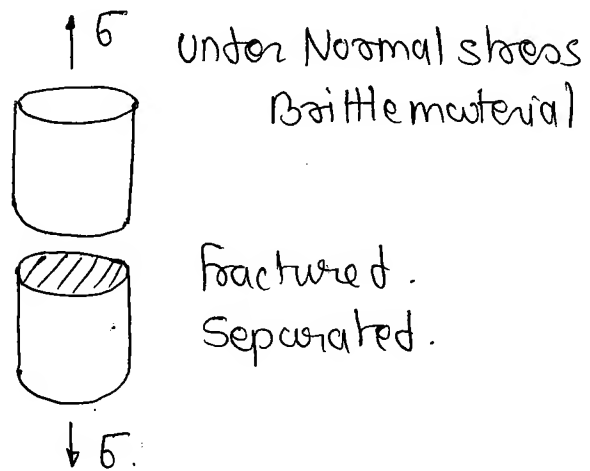 σ
under Normal stress
Brittle material
Fractured.
Separated.
σ.